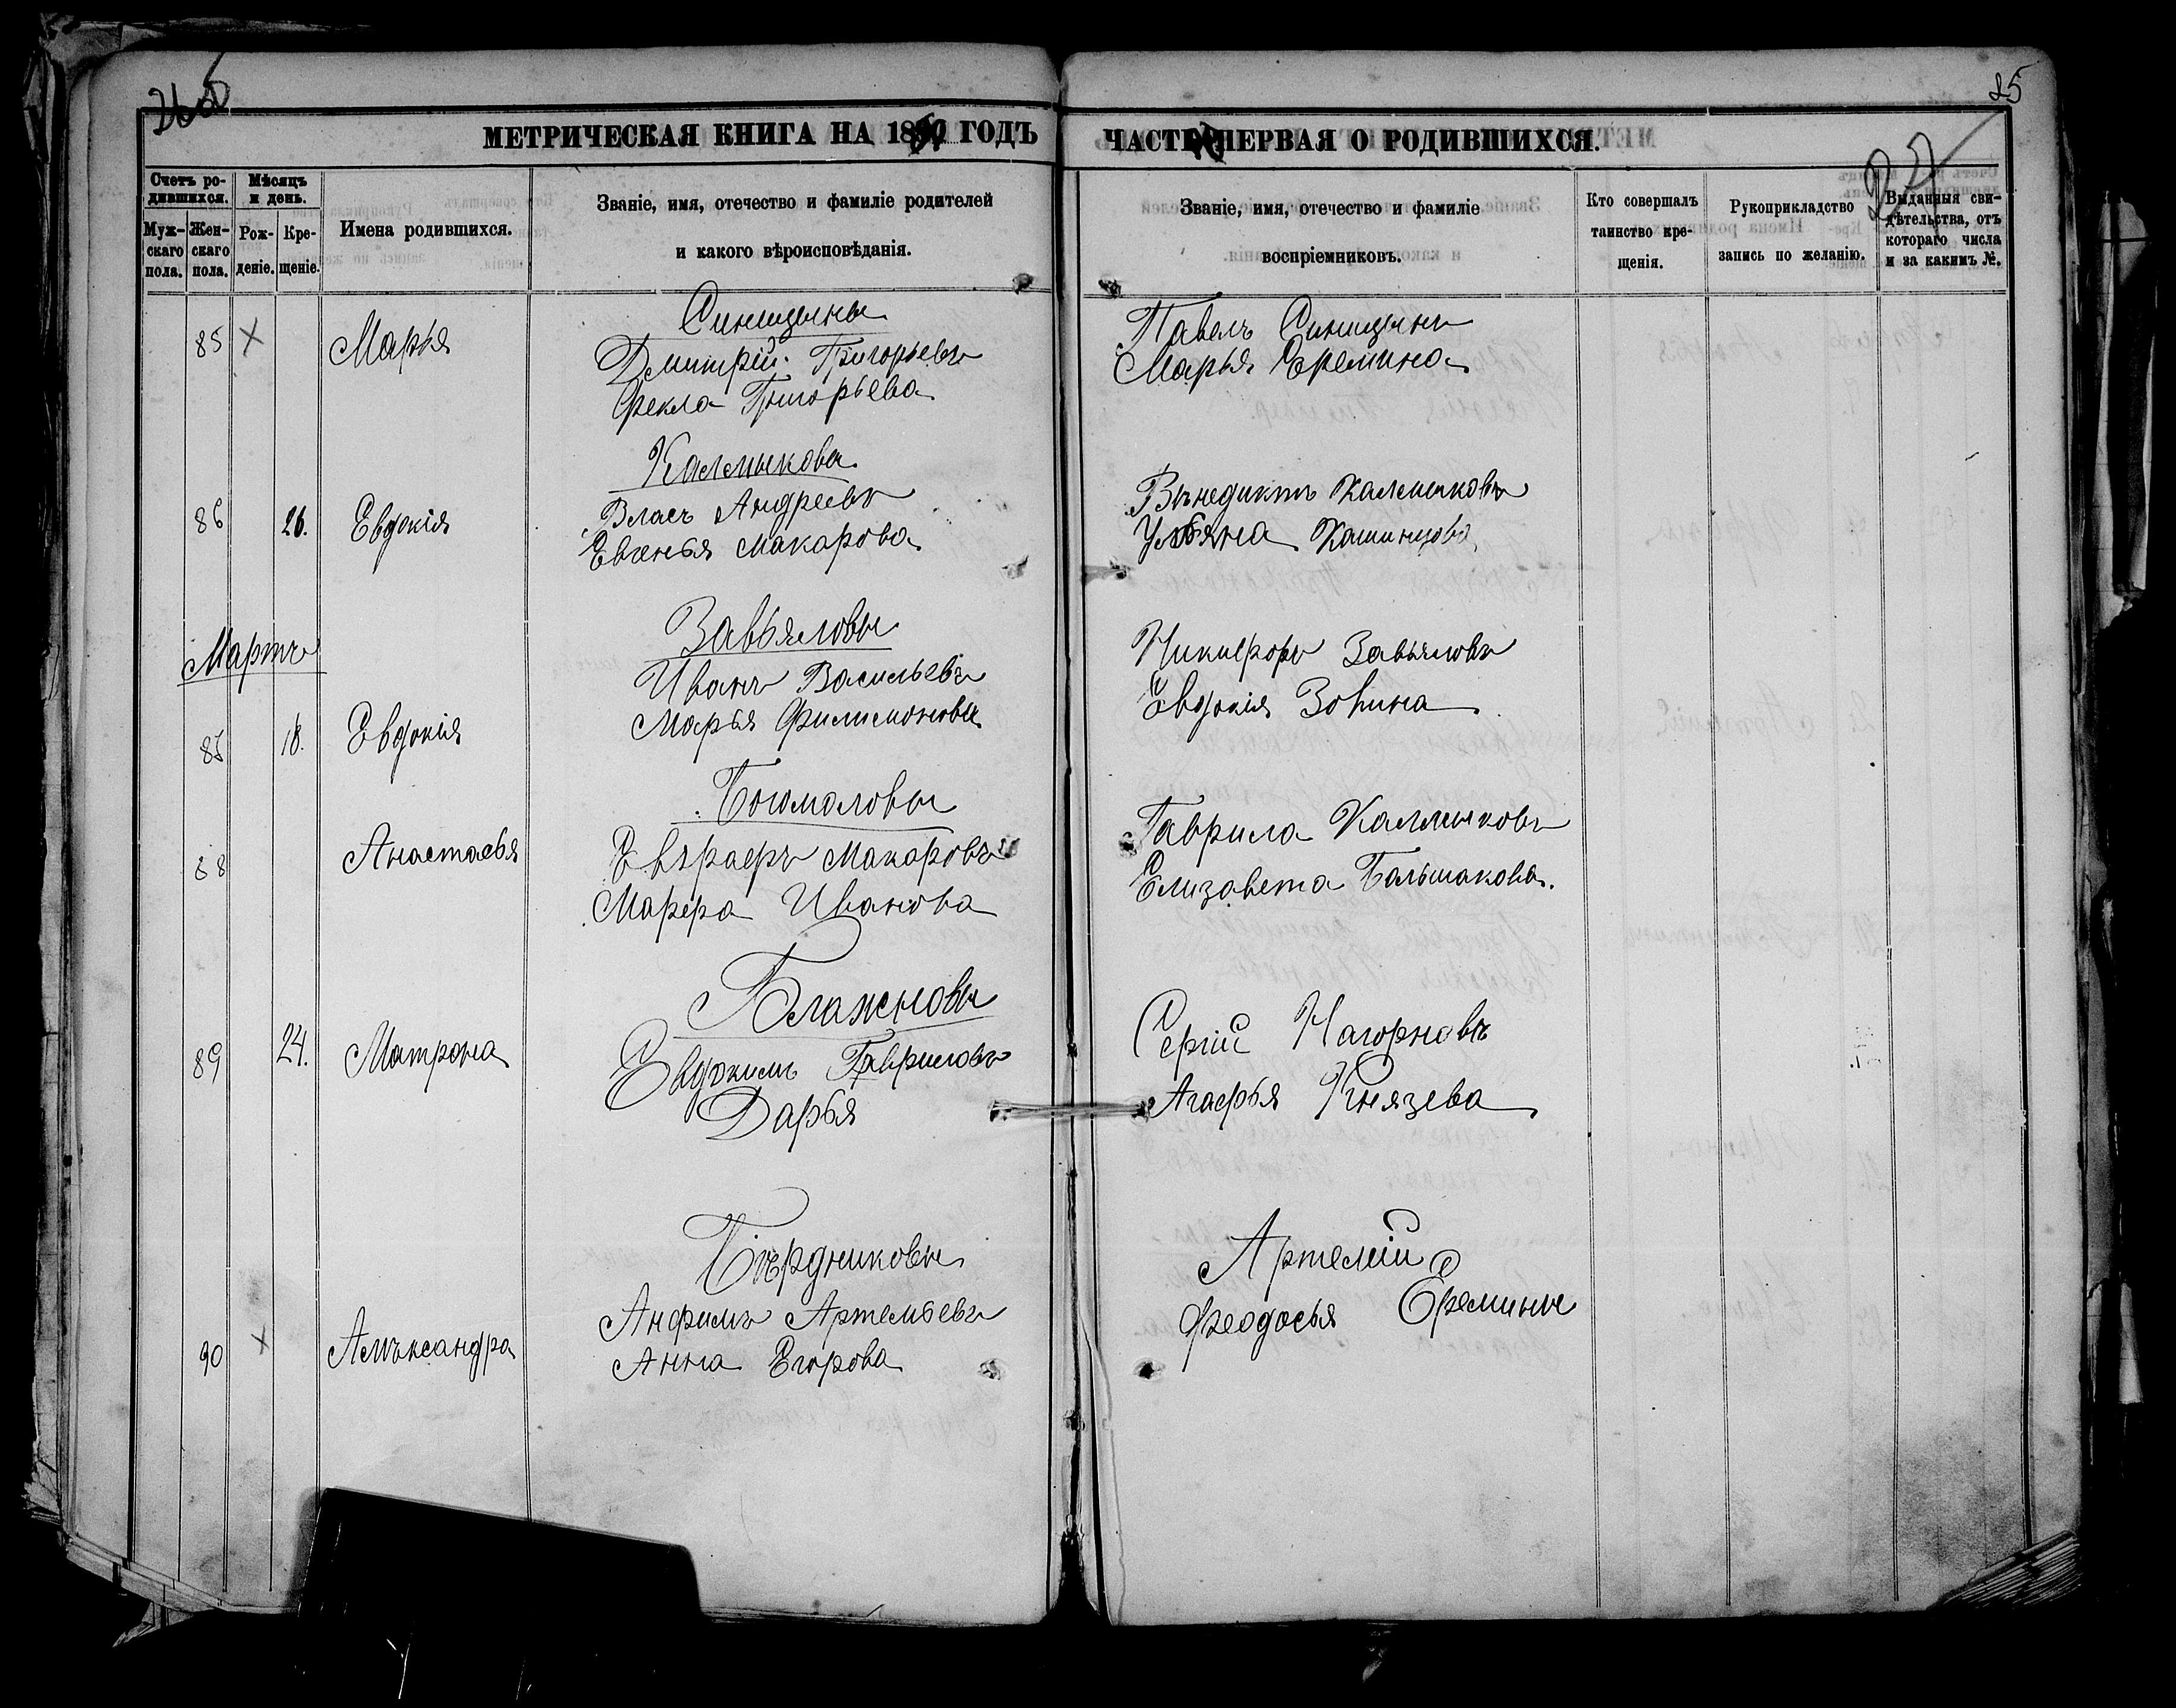 25
МЕТРИЧЕСКАЯ КНИГА НА 18 ГОДЪ
ЧАСТЬ ПЕРВАЯ О РОДИВШИХСЯ.
Счетъ ро-
дившихся.
Муж-
скаго
пола.
Жен-
скаго
пола.
Мѣсяцъ
и день.
Рож-
деніе.
Кре-
щеніе.
Имена родившихся.
Званіе, имя, отечество и фамиліе родителей
и какого вѣроисповѣданія.
Званіе, имя, отечество и фамиліе
воспріемниковъ.
Кто совершалъ
таинство кре-
щенія.
Рукоприкладство
запись по желанію.
Выданныя сви-
дѣтельства, отъ
котораго числа
и за какимъ №.
Синицыны
85 Х Марья Дмитрій Григорьевъ
Фекла Григорьева
Павелъ Синицынъ
Марья Еремина
Калмыковы
86 26. Евдокія Власъ Андреевъ
Евгенья Макарова
Вѣнедиктъ Калмыковъ
Ульяна
Мартъ
Завьяловы
18. Евдокія Иванъ Васильевъ
Марья Филимонова
Никифоръ Завьяловъ
Евдокія Зовина
Богомоловы
88 Анастасья Евграфъ Макаровъ
Марфа Иванова
Гаврила Калмыковъ
Елизавета Большакова.
Блаженовы
89 24. Матрона Евдокимъ Гавриловъ
Дарья
Сергій Нагорновъ
Агафья Князева
Бѣрдниковы
90 х Алѣксандра Анфимъ Артемьевъ
Анна Егорова
Артемій
Феодосья Еремины